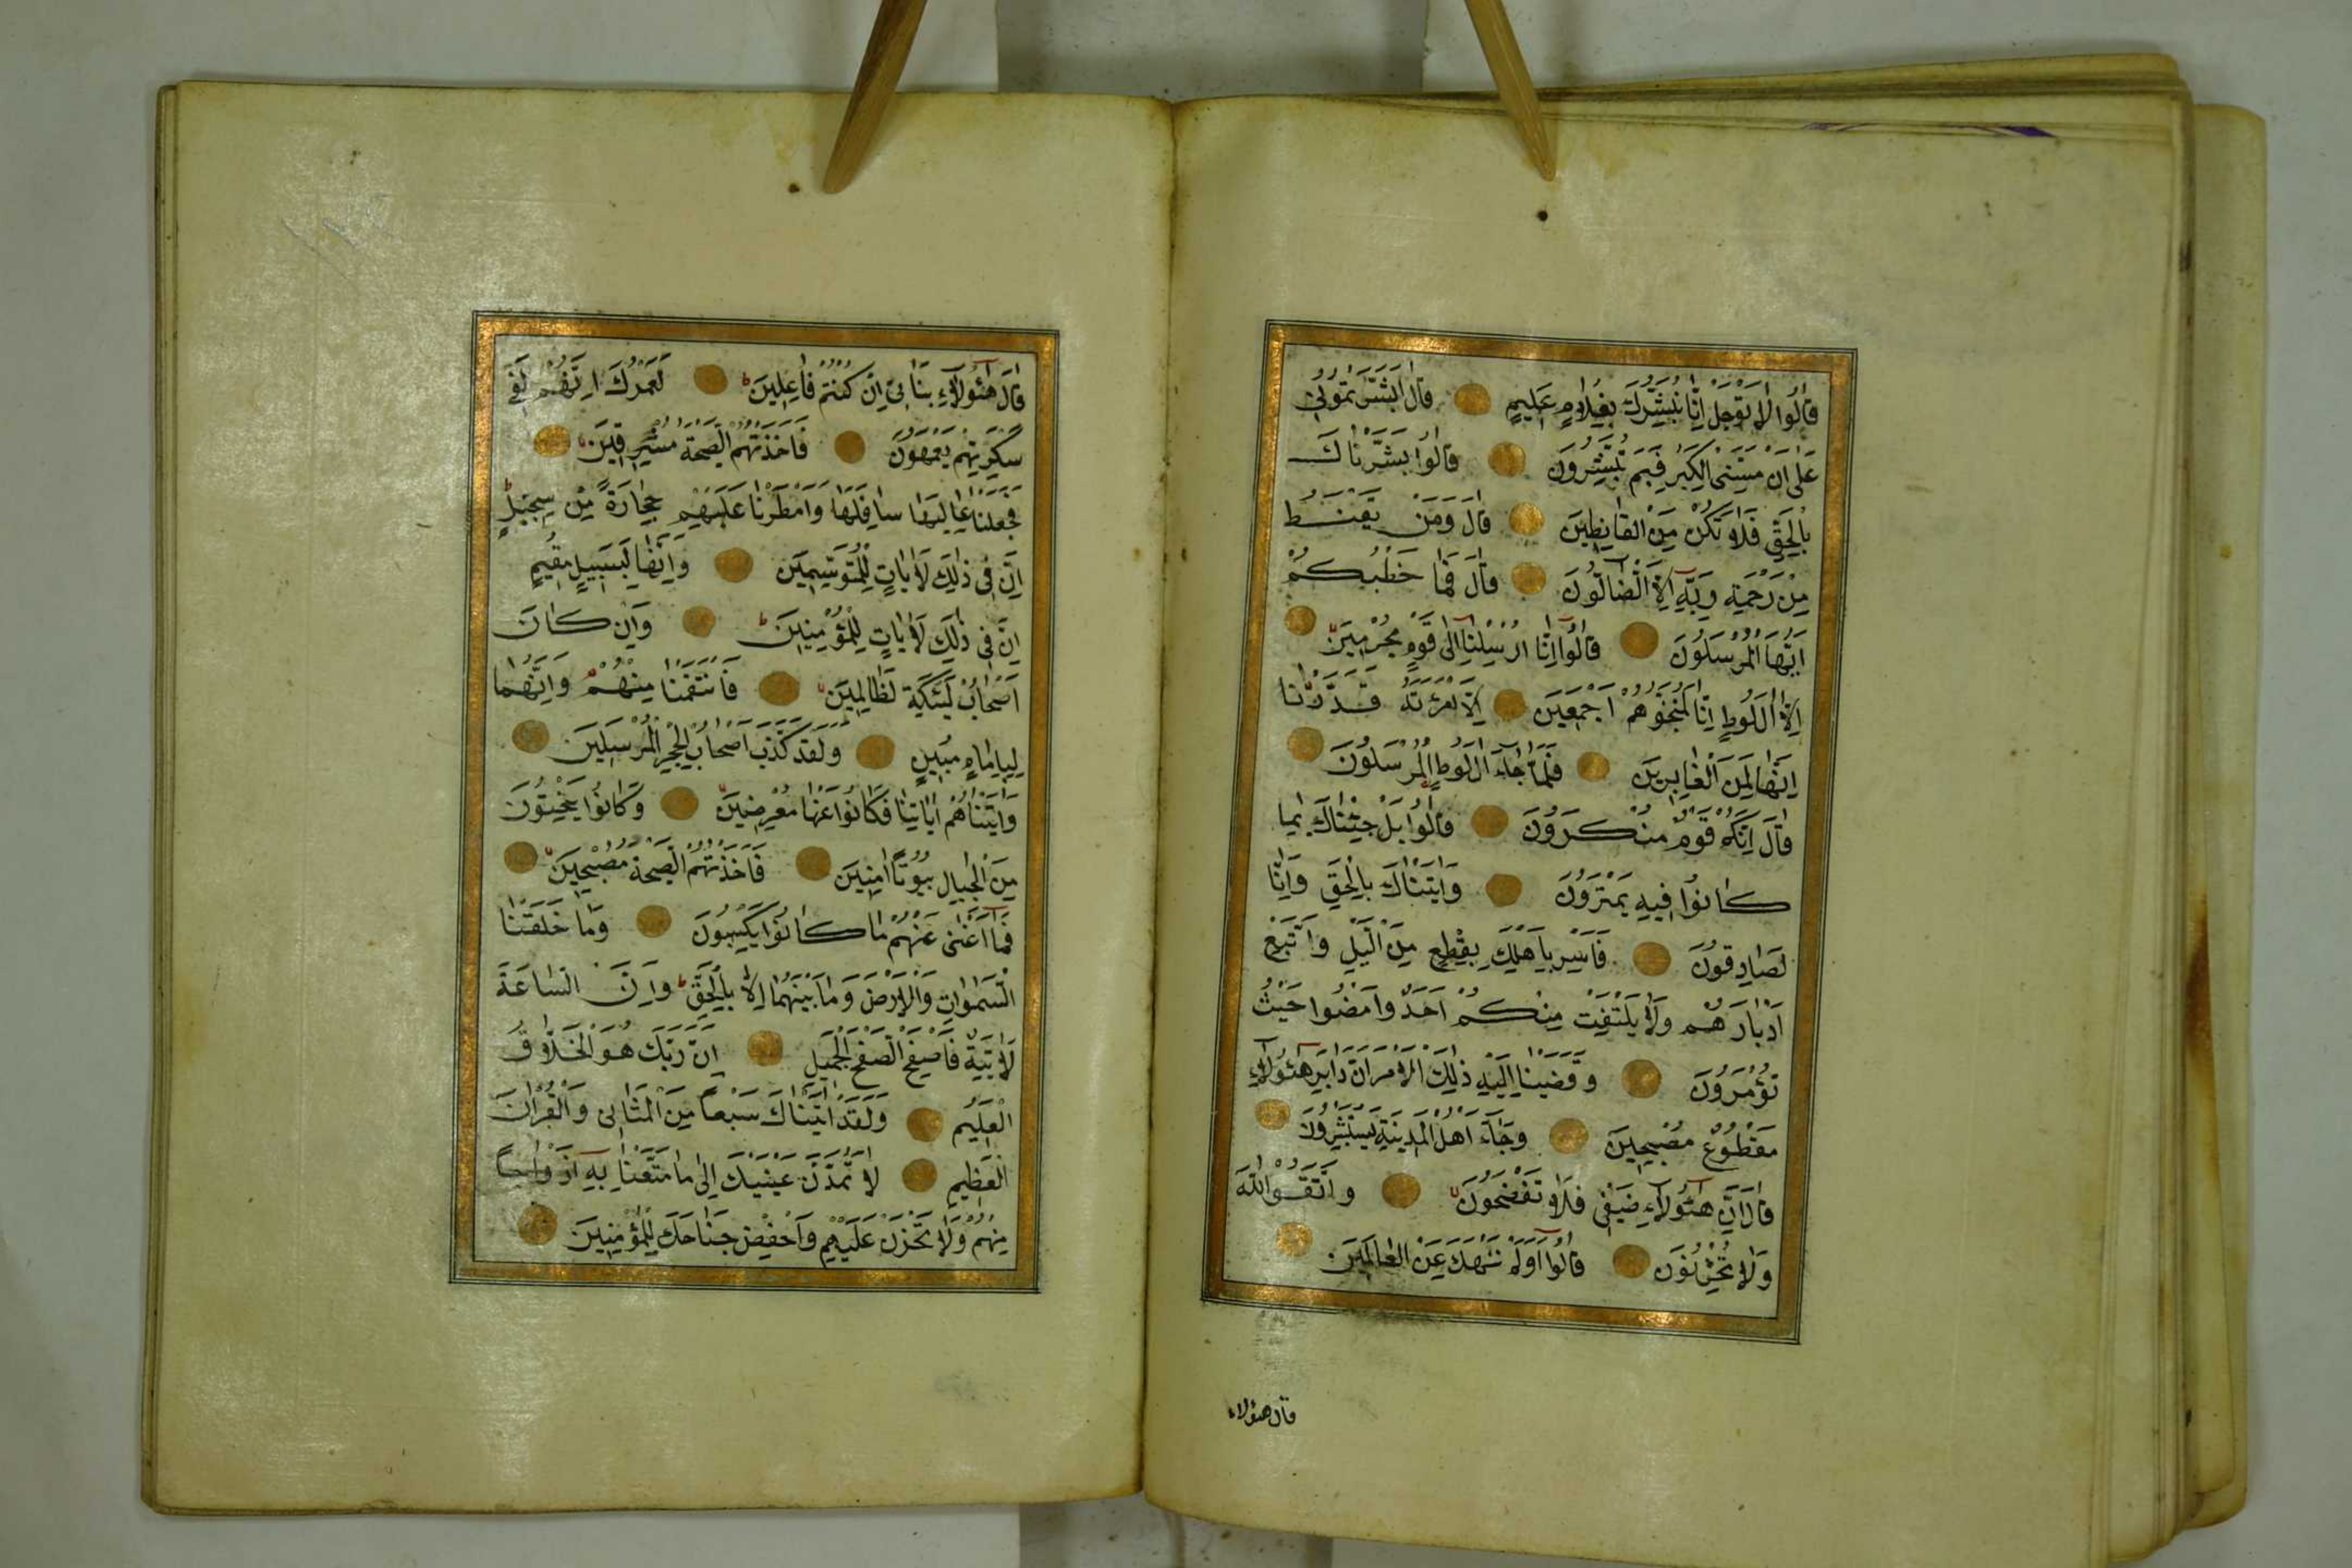 قَالُوا لَا تَوْجَلْ اِنَّا نُبَشِّرُكَ بِغُلَامٍ عَلِيمٍ قَالَ اَبَشَّرْتُمُونِي
عَلٰى اَنْ مَسَّنِيَ الْكِبَرُ فَبِمَ تُبَشِّرُونَ قَالُوا بَشَّرْنَاكَ
بِالْحَقِّ فَلَا تَكُنْ مِنَ الْقَانِطِينَ قَالَ وَمَنْ يَقْنَطُ
مِنْ رَحْمَةِ رَبِّهِ اِلَّا الضَّالُّونَ قَالَ فَمَا خَطْبُكُمْ
اَيُّهَا الْمُرْسَلُونَ قَالُوا اِنَّا اُرْسِلْنَا اِلٰى قَوْمٍ مُجْرِمِينَ
اِلَّا اٰلَ لُوطٍ اِنَّا لَمُنَجُّوهُمْ اَجْمَعِينَ اِلَّا امْرَاَتَهُ قَدَّرْنَا
اِنَّهَا لَمِنَ الْغَابِرِينَ فَلَمَّا جَاءَ اٰلَ لُوطٍ الْمُرْسَلُونَ
قَالَ اِنَّكُمْ قَوْمٌ مُنْكَرُونَ قَالُوا بَلْ جِئْنَاكَ بِمَا
كَانُوا فِيهِ يَمْتَرُونَ وَاَتَيْنَاكَ بِالْحَقِّ وَاِنَّا
لَصَادِقُونَ فَاَسْرِ بِاَهْلِكَ بِقِطْعٍ مِنَ الَّيْلِ وَاتَّبِعْ
اَدْبَارَهُمْ وَلَا يَلْتَفِتْ مِنْكُمْ اَحَدٌ وَامْضُوا حَيْثُ
تُؤْمَرُونَ وَقَضَيْنَا اِلَيْهِ ذٰلِكَ الْاَمْرَ اَنَّ دَابِرَ هٰؤُلَاءِ
مَقْطُوعٌ مُصْبِحِينَ وَجَاءَ اَهْلُ الْمَدِينَةِ يَسْتَبْشِرُونَ
قَالَ اِنَّ هٰؤُلَاءِ ضَيْفِي فَلَا تَفْضَحُونَ وَاتَّقُوا اللّٰهَ
وَلَا تُخْزُونَ قَالُوا اَوَلَمْ نَنْهَكَ عَنِ الْعَالَمِينَ
قال هؤلاء
قَالَ هٰؤُلَاءِ بَنَاتِي اِنْ كُنْتُمْ فَاعِلِينَ لَعَمْرُكَ اِنَّهُمْ لَفِي
سَكْرَتِهِمْ يَعْمَهُونَ فَاَخَذَتْهُمُ الصَّيْحَةُ مُشْرِقِينَ
فَجَعَلْنَا عَالِيَهَا سَافِلَهَا وَاَمْطَرْنَا عَلَيْهِمْ حِجَارَةً مِنْ سِجِّيلٍ
اِنَّ فِي ذٰلِكَ لَاٰيَاتٍ لِلْمُتَوَسِّمِينَ وَاِنَّهَا لَبِسَبِيلٍ مُقِيمٍ
اِنَّ فِي ذٰلِكَ لَاٰيَاتٍ لِلْمُؤْمِنِينَ وَاِنْ كَانَ
اَصْحَابُ لْئَيْكَةِ لَظَالِمِينَ فَانْتَقَمْنَا مِنْهُمْ وَاِنَّهُمَا
لَبِاِمَامٍ مُبِينٍ وَلَقَدْ كَذَّبَ اَصْحَابُ الْحِجْرِ الْمُرْسَلِينَ
وَاٰتَيْنَاهُمْ اٰيَاتِنَا فَكَانُوا عَنْهَا مُعْرِضِينَ وَكَانُوا يَنْحِتُونَ
مِنَ الْجِبَالِ بُيُوتًا اٰمِنِينَ فَاَخَذَتْهُمُ الصَّيْحَةُ مُصْبِحِينَ
فَمَا اَغْنٰى عَنْهُمْ مَا كَانُوا يَكْسِبُونَ وَمَا خَلَقْنَا
السَّمٰوَاتِ وَالْاَرْضَ وَمَا بَيْنَهُمَا اِلَّا بِالْحَقِّ وَاِنَّ السَّاعَةَ
لَاٰتِيَةٌ فَاصْفَحِ الصَّفْحَ الْجَمِيلَ اِنَّ رَبَّكَ هُوَ الْخَلَّاقُ
الْعَلِيمُ وَلَقَدْ اٰتَيْنَاكَ سَبْعًا مِنَ الْمَثَانِي وَالْقُرْاٰنَ
الْعَظِيمَ لَا تَمُدَّنَّ عَيْنَيْكَ اِلٰى مَا مَتَّعْنَا بِهِ اَزْوَاجًا
مِنْهُمْ وَلَا تَحْزَنْ عَلَيْهِمْ وَاخْفِضْ جَنَاحَكَ لِلْمُؤْمِنِينَ